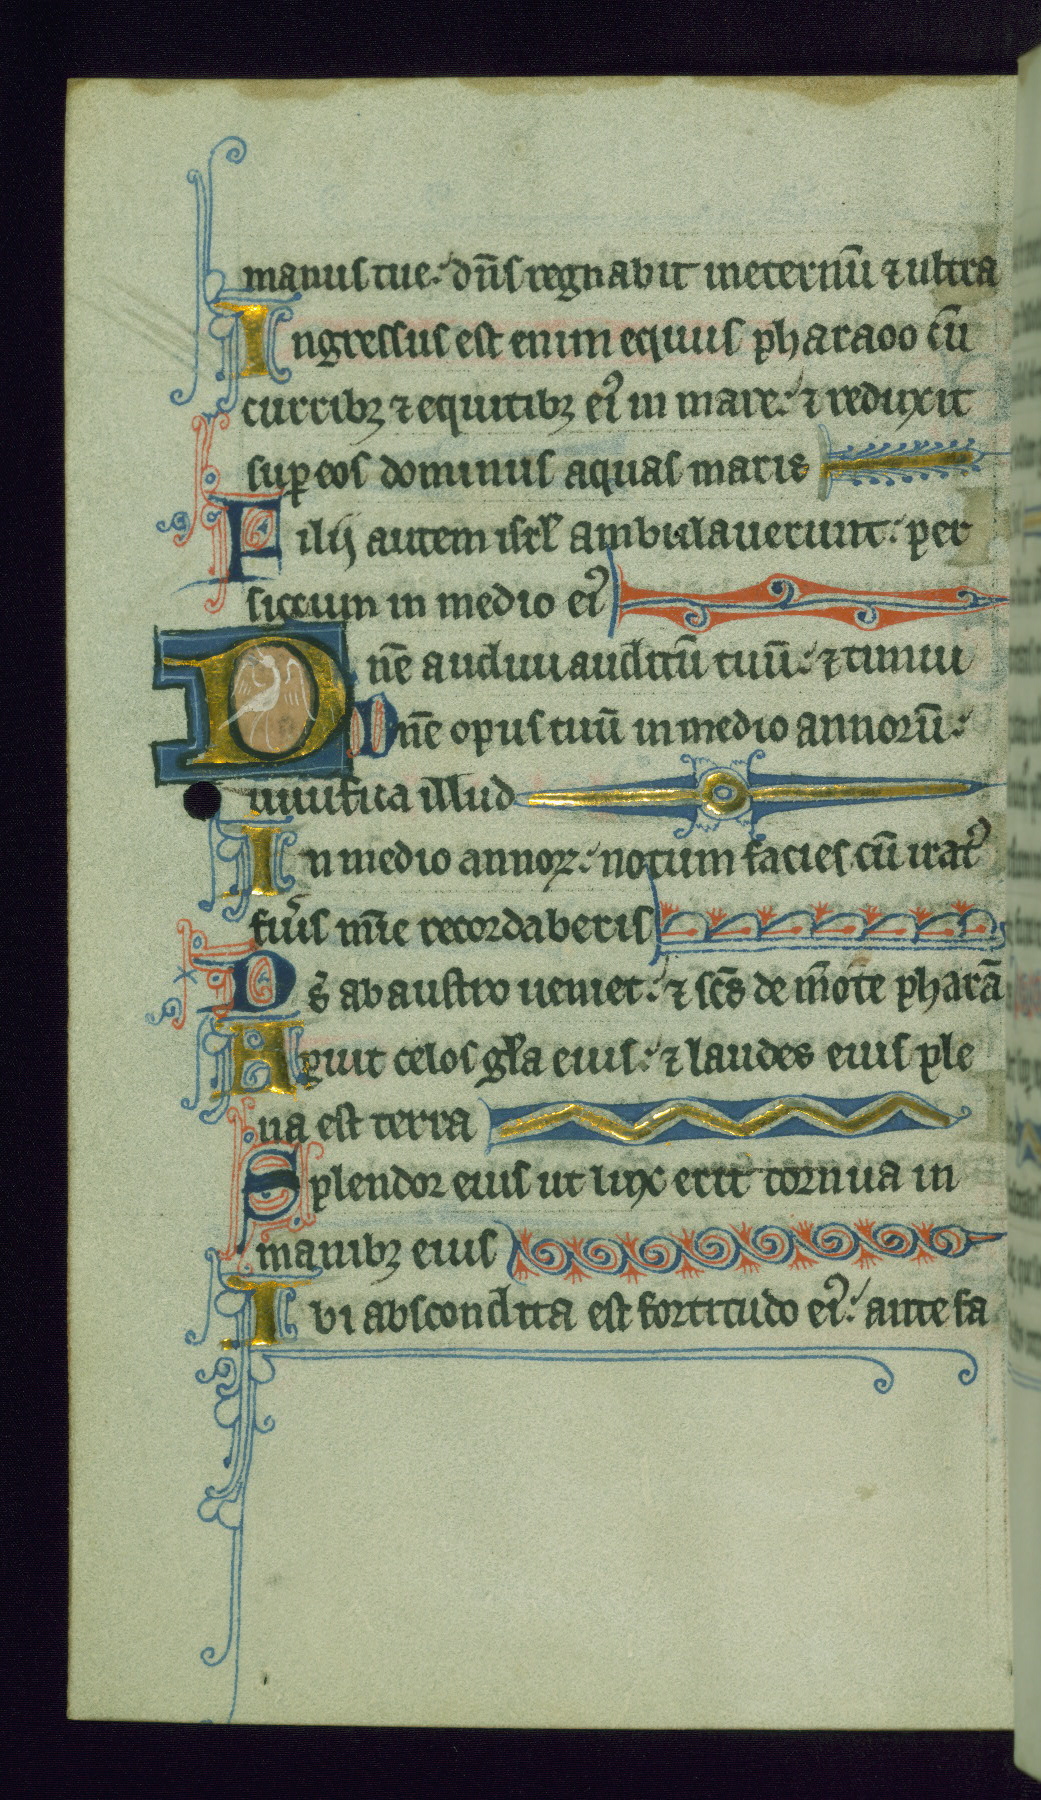 manus tue. dñs regnabit ineternũ ⁊ ultra
Ingressus est enim equus pharaoo cũ
curribꝫ ⁊ equitibꝫ ei᷒ in mare. ⁊ reduxit
suꝑ eos dominus aquas maris
Filij autem isrł ambulauerunt. per
siccum in medio ei᷒
Dñe audiui auditũ tuũ. ⁊ timui
Dñe opus tuũ in medio annorũ.
uiuifica illud
In medio annoꝝ. notum facies cũ irat᷒
fũis mĩe recordaberis
Ds̃ ab austro ueniet. ⁊ scs̃ de mõte pharã
Apuit celos gł̃a eius. ⁊ laudes eius ple
na est terra
Splendor eius ut lux erit cornua in
manibꝫ eius
Ibi abscondita est fortitudo ei᷒. ante fa